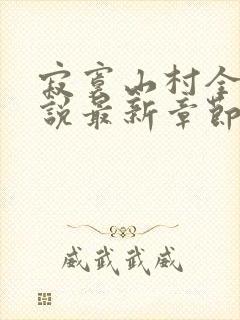 寂寞山村全
說最新章節
威武武威